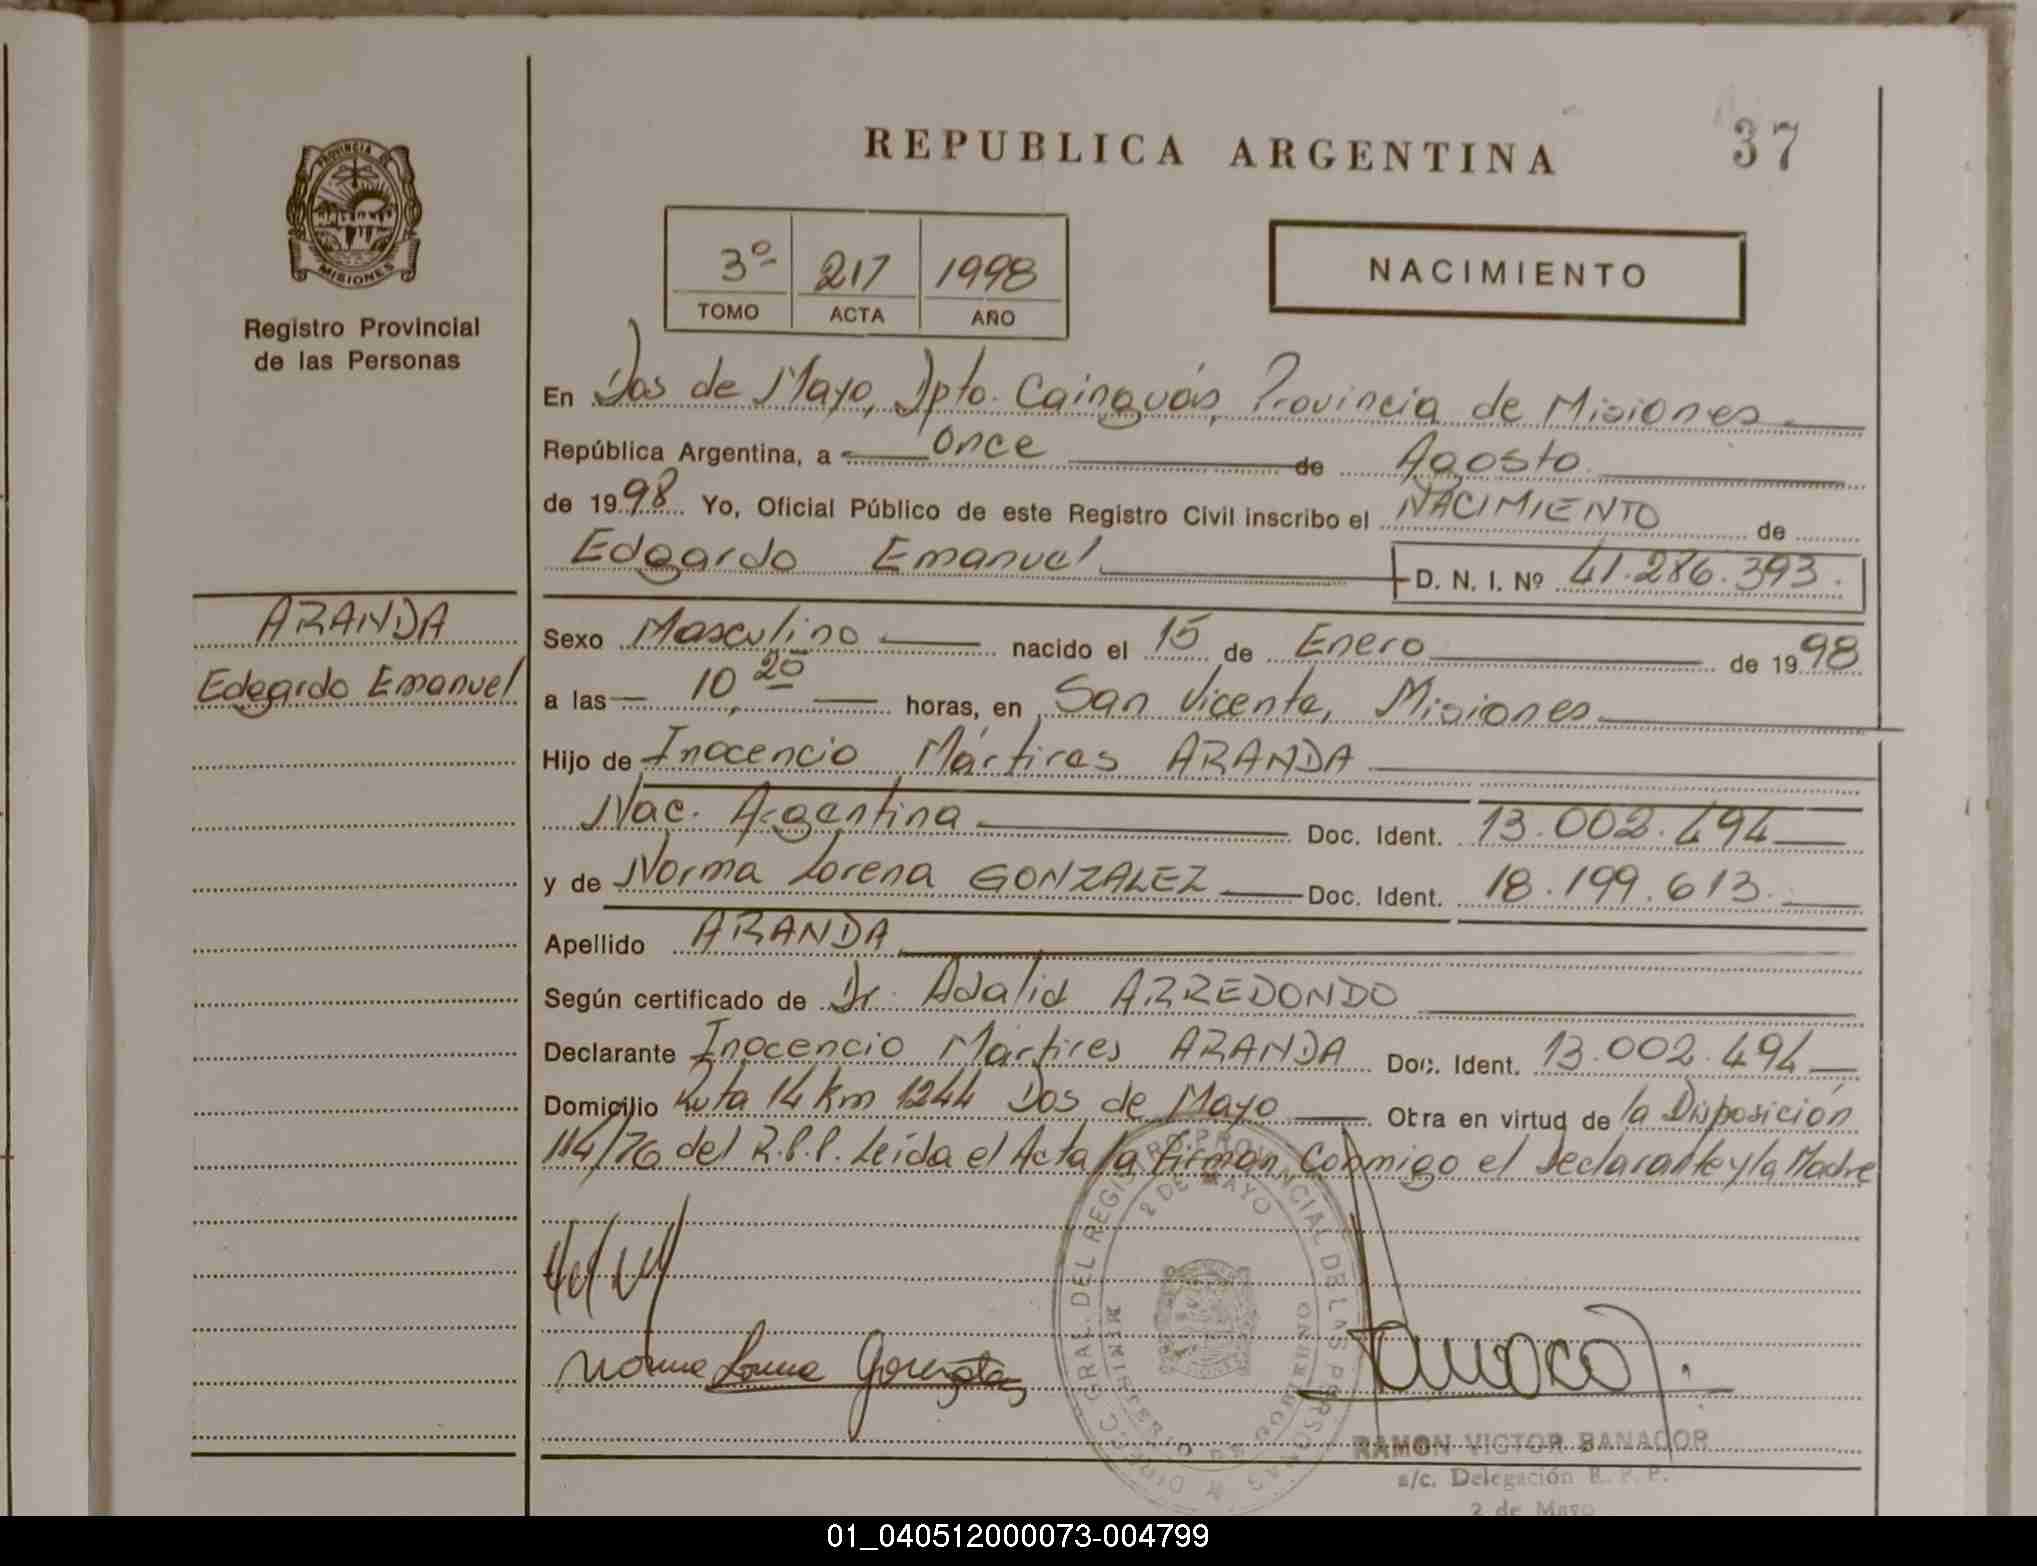 PROVINCIA DE
MISIONES
Registro Provincial
de las Personas
ARANDA
Edegardo Emanuel
REPUBLICA ARGENTINA
37
3º 217 1998
TOMO ACTA AÑO
NACIMIENTO
En Dos de Mayo, Dpto. Cainguás, Provincia de Misiones
República Argentina, a once de Agosto
de 1998 Yo, Oficial Público de este Registro Civil inscribo el NACIMIENTO de
Edgardo Emanuel D. N. I. Nº 41.286.393.
Sexo Masculino nacido el 15 de Enero de 1998
a las 10,20 horas, en San Vicente, Misiones
Hijo de Inocencio Mártires ARANDA
Nac. Argentina Doc. Ident. 13.002.494
y de Norma Lorena GONZALEZ Doc. Ident. 18.199.613.
Apellido ARANDA
Según certificado de Dr. Adalid ARREDONDO
Declarante Inocencio Mártires ARANDA Doc. Ident. 13.002.494
Domicilio Ruta 14 Km 1244 Dos de Mayo Obra en virtud de la Disposición
114/76 del R.P.P. Leída el Acta la firman Conmigo el Declarante y la Madre
Norma Lorena Gonzalez
DIRECC. GRAL. DEL REGISTRO PROVINCIAL DE LAS PERSONAS
2 DE MAYO
MINISTERIO DE GOBIERNO
RAMON VICTOR BANACOR
a/c. Delegación R. P. P.
2 de Mayo
01_040512000073-004799